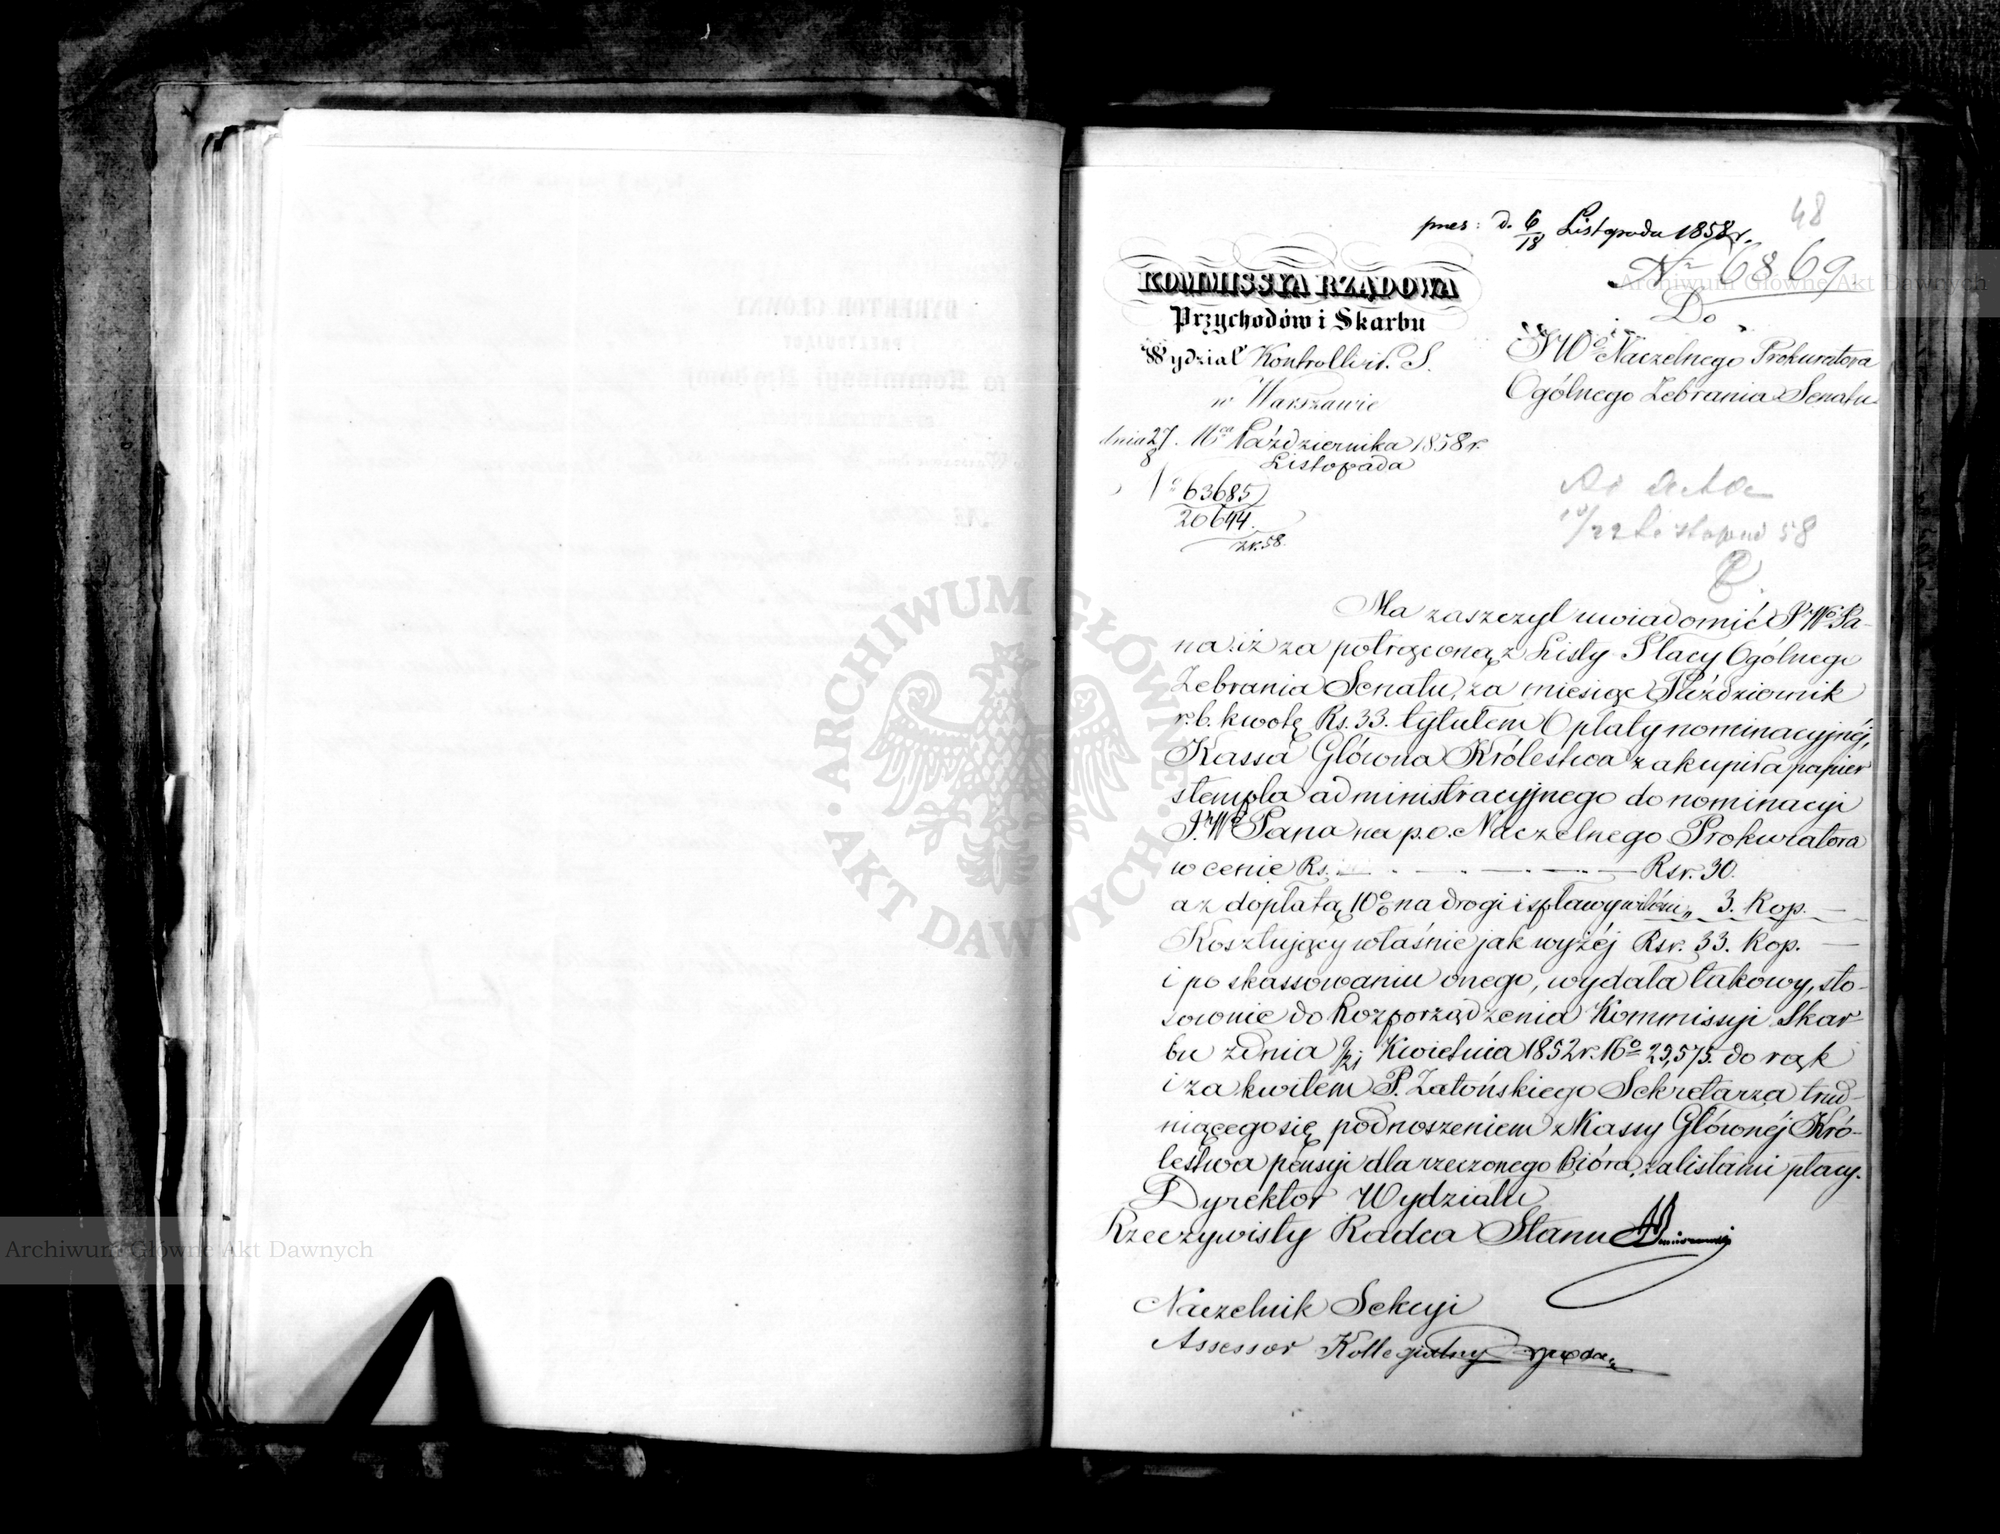 48
pres: d. 6/18 Listopada 1858 r.
№ 6869
KOMMISSYA RZĄDOWA
Przychodów i Skarbu
Wydział Kontrolli
w Warszawie
dnia 27 Października 1858 r.
8 Listopada
№ 63685
20644
zr. 58.
Do
JWo Naczelnego Prokuratora
Ogólnego Zebrania Senatu
Ad acta
10/22 Listopad 58
Ma zaszczyt uwiadomić JWo Pa-
na iż za potrąconą z Listy Płacy Ogólnego
Zebrania Senatu, za miesiąc Październik
r. b. kwotę Rs. 33. tytułem Opłaty nominacyjnéj,
Kassa Główna Królestwa zakupiła papier
stempla administracyjnego do nominacyi
JWo Pana na p. o. Naczelnego Prokuratora
w cenie Rs. Rsr. 30.
a z dopłatą 10% na drogi i spławy 3. Kop. —
Kosztujący właśnie jak wyżéj Rsr. 33. Kop. —
i po skassowaniu onego, wydała takowy, sto-
sownie do Rozporządzenia Kommissyi Skar-
bu z dnia 9/21 Kwietnia 1852 r. № 23,575. do rąk
i za kwitem P. Zatońskiego Sekretarza trud-
niącego się podnoszeniem z Kassy Głównéj Kró-
lestwa pensyi dla rzeczonego Bióra, za listami płacy.
Dyrektor Wydziału
Rzeczywisty Radca Stanu
Naczelnik Sekcyi
Assessor Kollegialny
ARCHIWUM GŁÓWNE AKT DAWNYCH
Archiwum Główne Akt Dawnych
Archiwum Główne Akt Dawnych